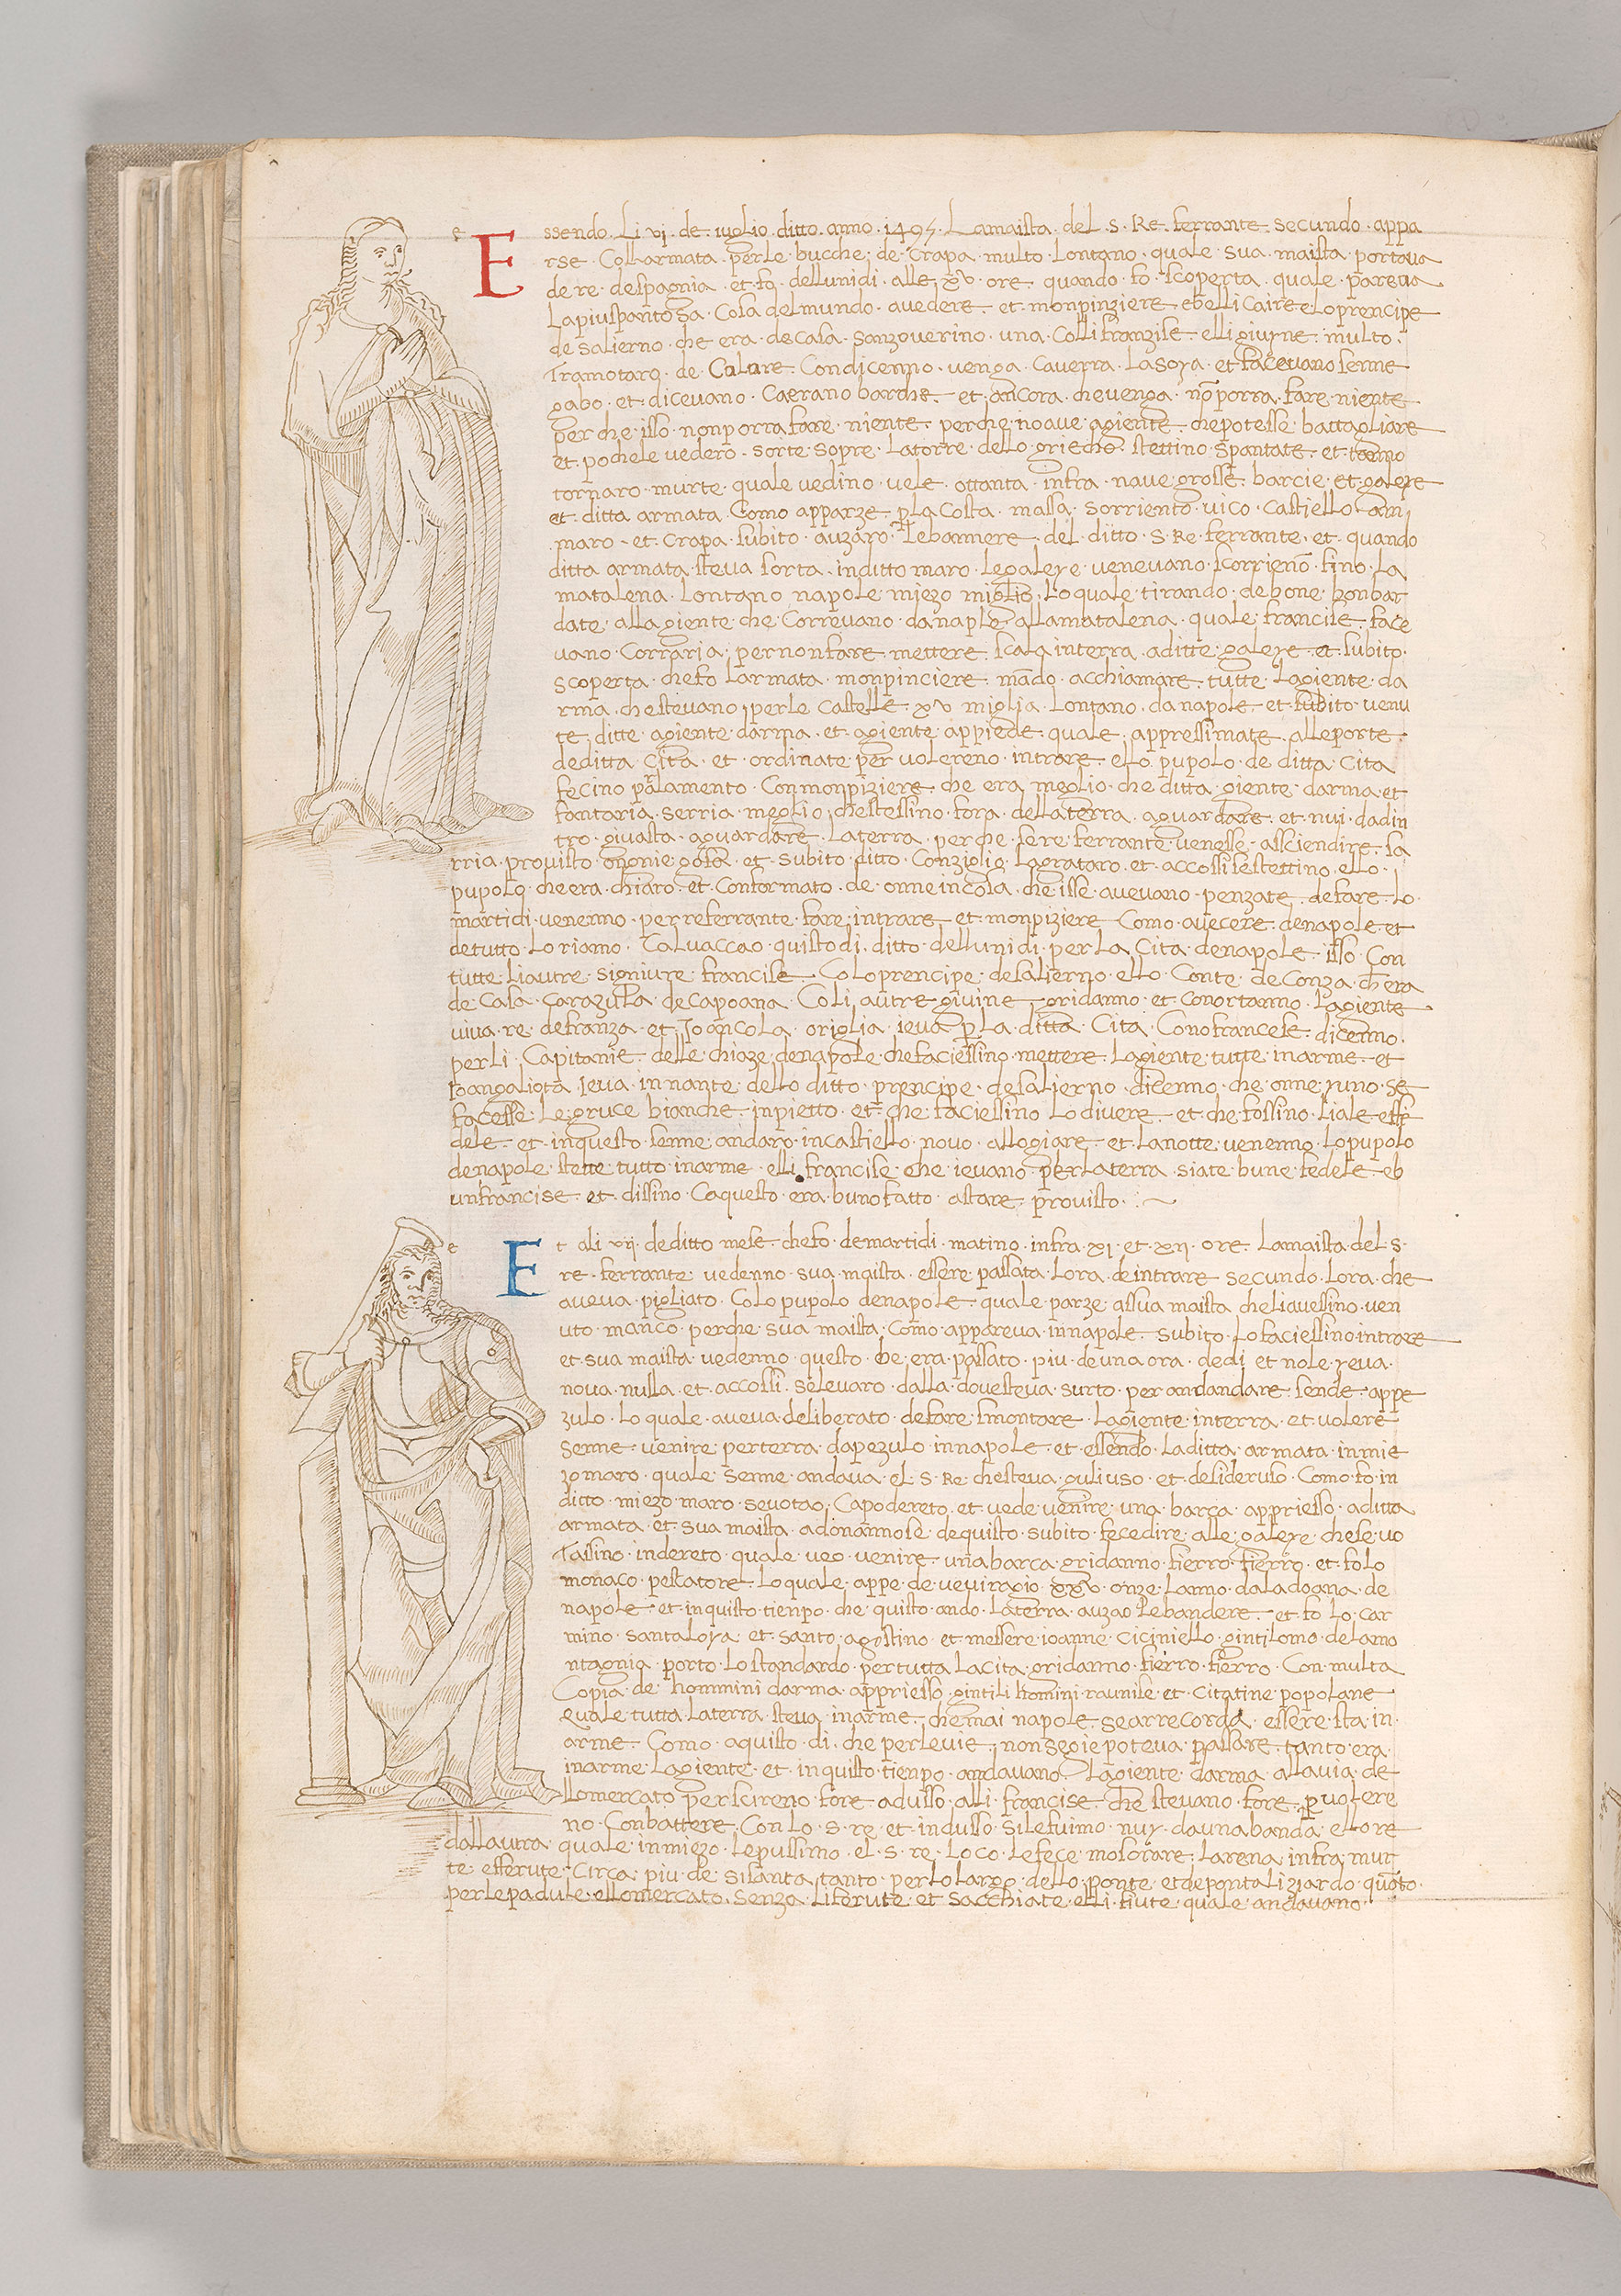 Essendo · Li vj · de · iuglio · ditto · anno · 1495 · Lamaista · del · s · Re · ferrante · secundo · appa
rse · Coll armata · perle · bucche · de · Crapa · multo · Lontano · quale · sua · maista · portava
de re · despagnia · et fo · dellunidi · alle · xv · ore · quando · fo · scoperta · quale · pareva
Lapiuspantosa · Cosa delmundo · avedere · et monpinziere · ebelli Caire e Loprencipe
de Salierno · che era · de casa · Sanzoverino · una · Colli franzise · elli giuyne · multo ·
Tramotaro · de ·Culure · Condicenno · venga · Caverra · La soya · et facevano senne
gabo · et · dicevano · Caerano barche · et ancora · chevenga · nō porra · fare niente
per che · isso · nonporra fare · niente · perche noave agiente · chepotesse battagliare
et · pochele vedero · sorte · sopre · Latorre · dello grieche · stettino · spantate · et
tornaro · murte · quale vedino · vele · ottanta · infra · nave grosse · barcie · et galeye
et · ditta armata · Como apparze · p La Costa · massa · Sorriento · vico · Castiello am
maro · et Crapa · subito · auzaro · Lebannere · del · ditto · S · Re · ferrante · et · quando
ditta armata steva sorta · inditto maro · Legaleye · venevano · scorrieno · fino · La
matalena · Lontano napole miezo miglio · Lo quale · tirando · debone · bonbar
date · alla giente che Correvano · danaple · allamatalena · quale · francise · face
vano · Correria · pernonfare · mettere · scala interra · aditte galeye · et subito
scoperta · chefo Larmata · monpinciere · mādo · acchiamare · tutte · Lagiente · da
rma · chestevano perle Castelle · xv miglia · Lontano · da napole · et subito venu
te · ditte · agiente · darma · et · agiente appiede · quale · appressimate · alleporte ·
deditta Cita · et · ordinate per volereno · intrare · ello pupolo · de ditta Cita
fecino parlamento · Conmonpiziere · che era meglio · che ditta giente · darma et
fantaria serria · meglio · chestessino · fora · dellaterra · aguardare · et nui · dadin
tro · givasta · aguardare · Laterra · perche · se re ferrante venesse · assciendire · sa
rria · provisto · onnie · cosa · et · subito ditto · Conziglio · Lagrataro · et · accossi sestettino · ello ·
pupolo · che era · chiaro · et Confermato · de · onne incosa · che isse · avevano · penzate · defare · Lo
martidi · venenno · per referrante · fare · intrare · et · monpiziere · Como · avecere · denapole · et
detutto · Lo riamo · Calvaccao · quisto di · ditto · dellunidi · per La Cita · denapole · isso · Con
tutte · Liautre · signiure · francise · Co Loprencipe · desalierno · ello · Conte · de Conza · ch era
de Casa · Carazula · decapoana · Co Li autre giuine · gridanno · et Conortanno · Lagiente
viva · re · defranza · et Joancola · origlia · ieva p La · ditta · Cita · Conofrancese · dicenno ·
perli · Capitanie · delle chiaze denapole · chefaciessino · mettere · Lagiente tutte · inarme · et
Joangaliota · ieva · innante · dello ditto · prencipe · desalierno · dicenno · che · onne yuno · se
facesse · Legruce · bianche · inpietto · et che faciessino · Lo divere · et che fossino · Liale · effi
dele · et · inquesto senne · andaro · incastiello · novo · allogiare · et · Lanotte · venenno · Lopupolo
denapole · stette · tutto inarme · elli francise · che ievano · per Laterra · siate · bune · fedele · eb
unfrancise · et · dissino · Caquesto era buno fatto · astare · provisto ·
Et · ali vij · deditto mese · chefo demartidi · matino · infra · xi · et xij · ore · Lamaista · del · s ·
re · ferrante · vedenno · sua maista · essere passata · Lora · deintrare · secundo · Lora · che
aveva · pigliato · Colo pupolo · denapole · quale · parze assua maista cheliavessino · ven
uto manco · perche · sua maista · Como appareva innapole · subito · Lo faciessino intrare
et sua maista vedenno · questo · che · era · passato · piu · deuna ora · dedi et nole yeva ·
nova · nulla · et · accossi · selevaro · dalla · dovesteva · surto · per andandare · sende · appe
zulo · Lo quale · aveva deliberato · defare smontare · Lagiente interra · et volere
senne · venire perterra · dapezulo innapole · et · essendo · Laditta · armata · inmie
zo maro · quale · senne · andava · el · s · Re · chesteva · guliuso · et · desideruso · Como fo in
ditto · miezo maro · sevotao · Capodereto et vede venire · una · barca · appriesso · aditta
armata · et sua maista · adonannose · dequisto · subito · fecedire · alle galeye · chese vo
Tassino · indereto · quale · veo · venire · una barca · gridanno · fierro · fierro · et · fo lo
monaco · pescatore · Lo quale appe de · xxv · onze · Lanno · daladoana · de
napole · et · inquisto · tienpo · che quisto · ando · Laterra · auzao Lebandere · et fo Lo · Car
mino · santaloya · et · santo · agostino · et · messere · ioanne · Ciciniello · gintilomo · delamo
ntagnia · porto · Lo standardo · pertutta Lacita · gridanno · fierro · fierro · Con · multa
Copia · de hommini darma · appriesso · gintili homini · raunise · et · Citatine · popolane
quale · tutta · Laterra · steva · inarme · chemai napole · searrecorda · essere · sta in
arme · Como · aquisto · di · che perlevie · nonsegiepoteva · passare · tanto era ·
inarme · Lagiente · et · inquisto · tienpo · andavano · Lagiente · darma · allavia · de
llomercato perscireno fore · adusso · alli · francise · che stevano · fore · p volere
no · Conbattere · Con Lo · s · re · et · indusso · silefuimo · nuy · dauna banda · ello re
dallautra · quale · inmiezo · lepussimo · el · s · re · Loco · Lefece · mosorare · Larena · infra mur
te · efferute · Circa · piu · de sisanta · tanto · per Lo largo · dello ponte · et depontaliziardo · quāto
perlepadule · ellomercato · Senza · Liferute · et · Sacchiate · elli · fiute · quale · andavano ·